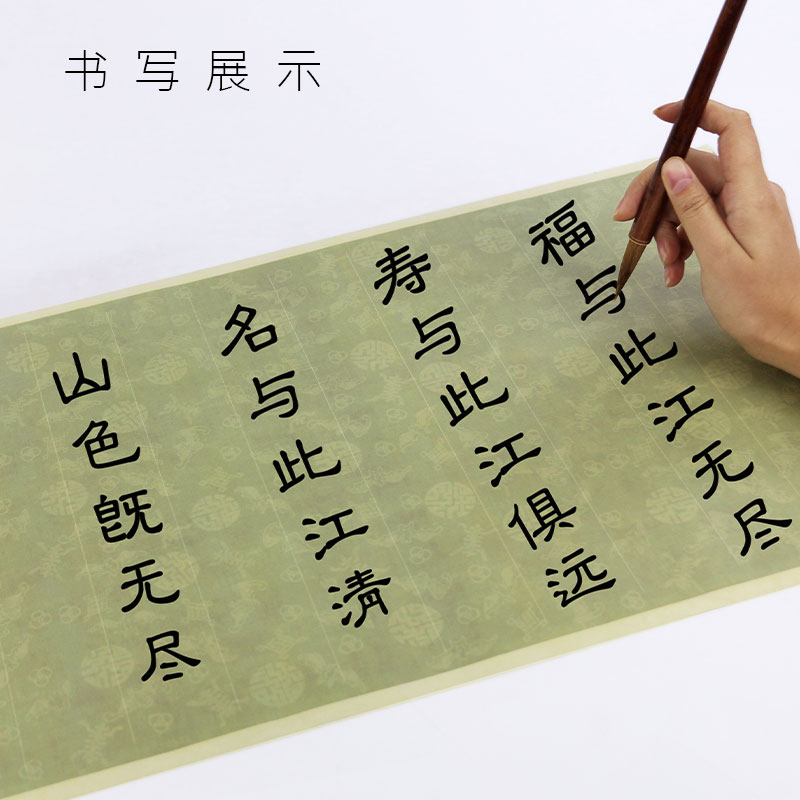 书写展示
福与此江无尽
寿与此江俱远
名与此江清
山色既无尽